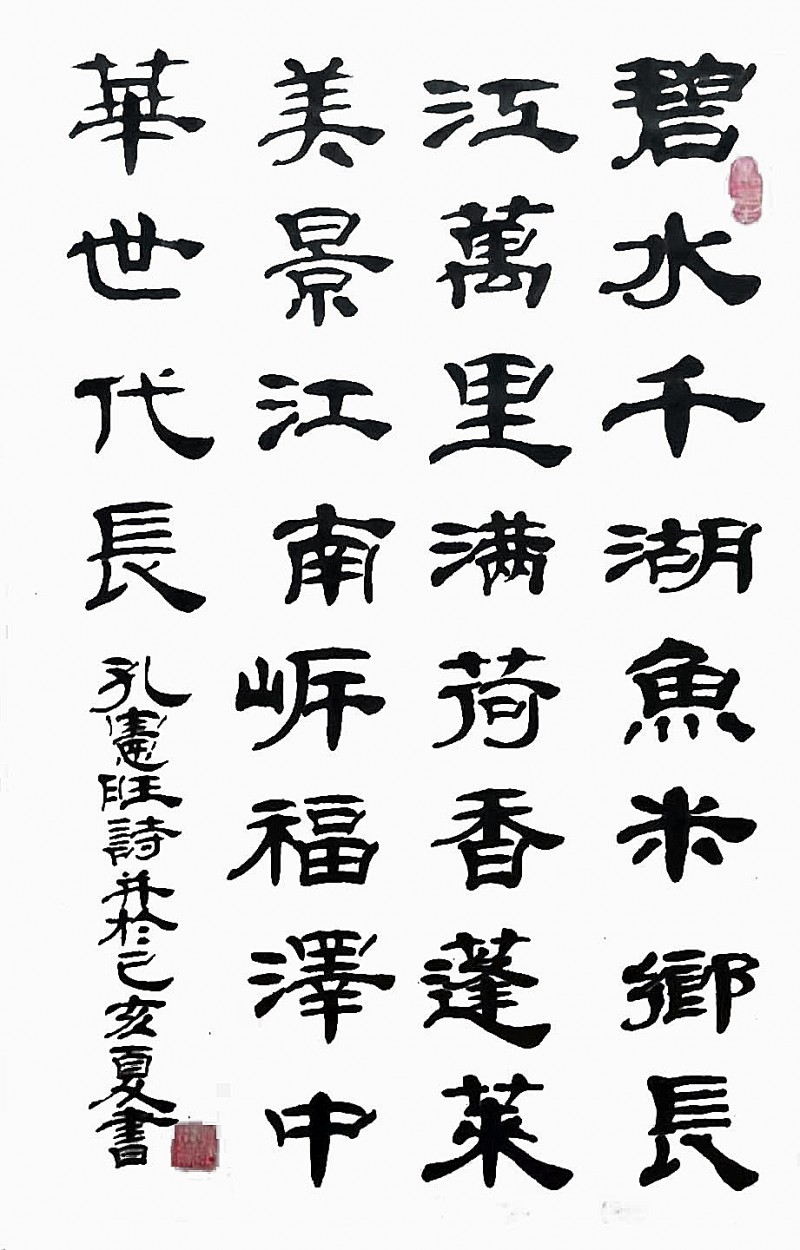 碧水千湖魚米鄉長
江萬里满荷香蓬萊
美景江南岸福澤中
華世代長
孔憲旺詩并於己亥夏書